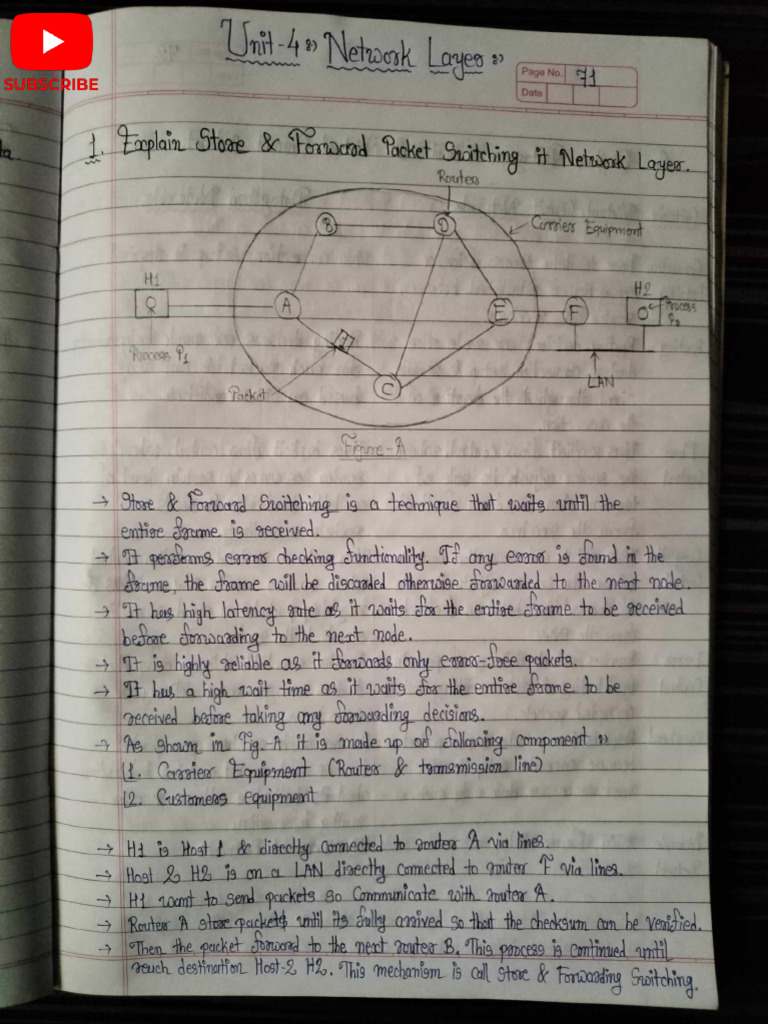 SUBSCRIBE
Unit-4 :) Network Layer :)
Page No. 71
Date
1. Explain Store & Forword Packet Switching it Network Layer.
Routers
B
D
Carrier Equipment
H1
H2
A
E
F
Process P2
Process P1
Packet
C
LAN
Figure-A
→ Store & Forword Switching is a technique that waits until the
entire frame is received.
→ It performs error checking functionality. If any error is found in the
frame, the frame will be discarded otherwise forwarded to the next node.
→ It has high latency rate as it waits for the entire frame to be received
before forwarding to the next node.
→ It is highly reliable as it forwards only error-free packets.
→ It has a high wait time as it waits for the entire frame to be
received before taking any forwarding decisions.
→ As shown in Fig-A it is made up of following component :)
1. Carrier Equipment (Router & transmission line)
2. Customers equipment
→ H1 is Host 1 & directly connected to router A via lines.
→ Host 2 H2 is on a LAN directly connected to router F via lines.
→ H1 want to send packets so Communicate with router A.
→ Router A store packets until its fully arrived so that the checksum can be verified.
→ Then the packet forword to the next router B. This process is continued until
reach destination Host-2 H2. This mechanism is call Store & Forwarding Switching.